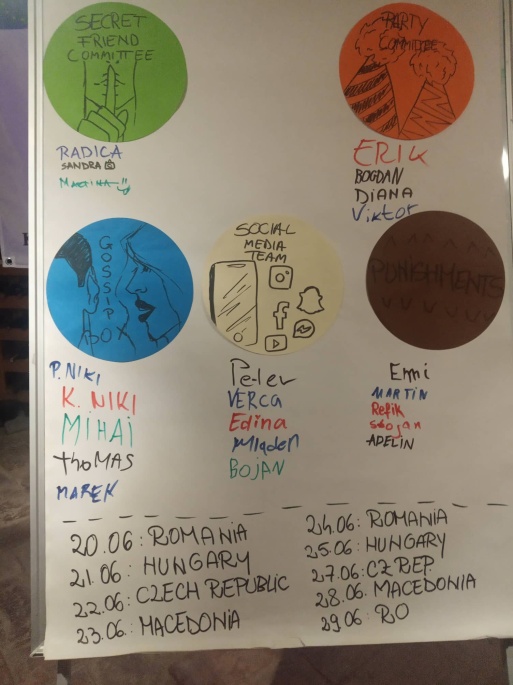 SECRET
FRIEND
COMMITTEE
RADICA
SANDRA
Martina
PARTY
COMMITTEE
ERIK
BOGDAN
DIANA
Viktor
GOSSIP
BOX
P. NIKI
K. NIKI
MIHAI
THOMAS
MAREK
SOCIAL
MEDIA
TEAM
Peter
VERCA
Edina
Mladen
BOJAN
PUNISHMENTS
Emi
MARTIN
Refik
Stojan
ADELIN
20.06: ROMANIA
21.06: HUNGARY
22.06: CZECH REPUBLIC
23.06: MACEDONIA
24.06: ROMANIA
25.06: HUNGARY
27.06: CZ REP.
28.06: MACEDONIA
29.06: RO